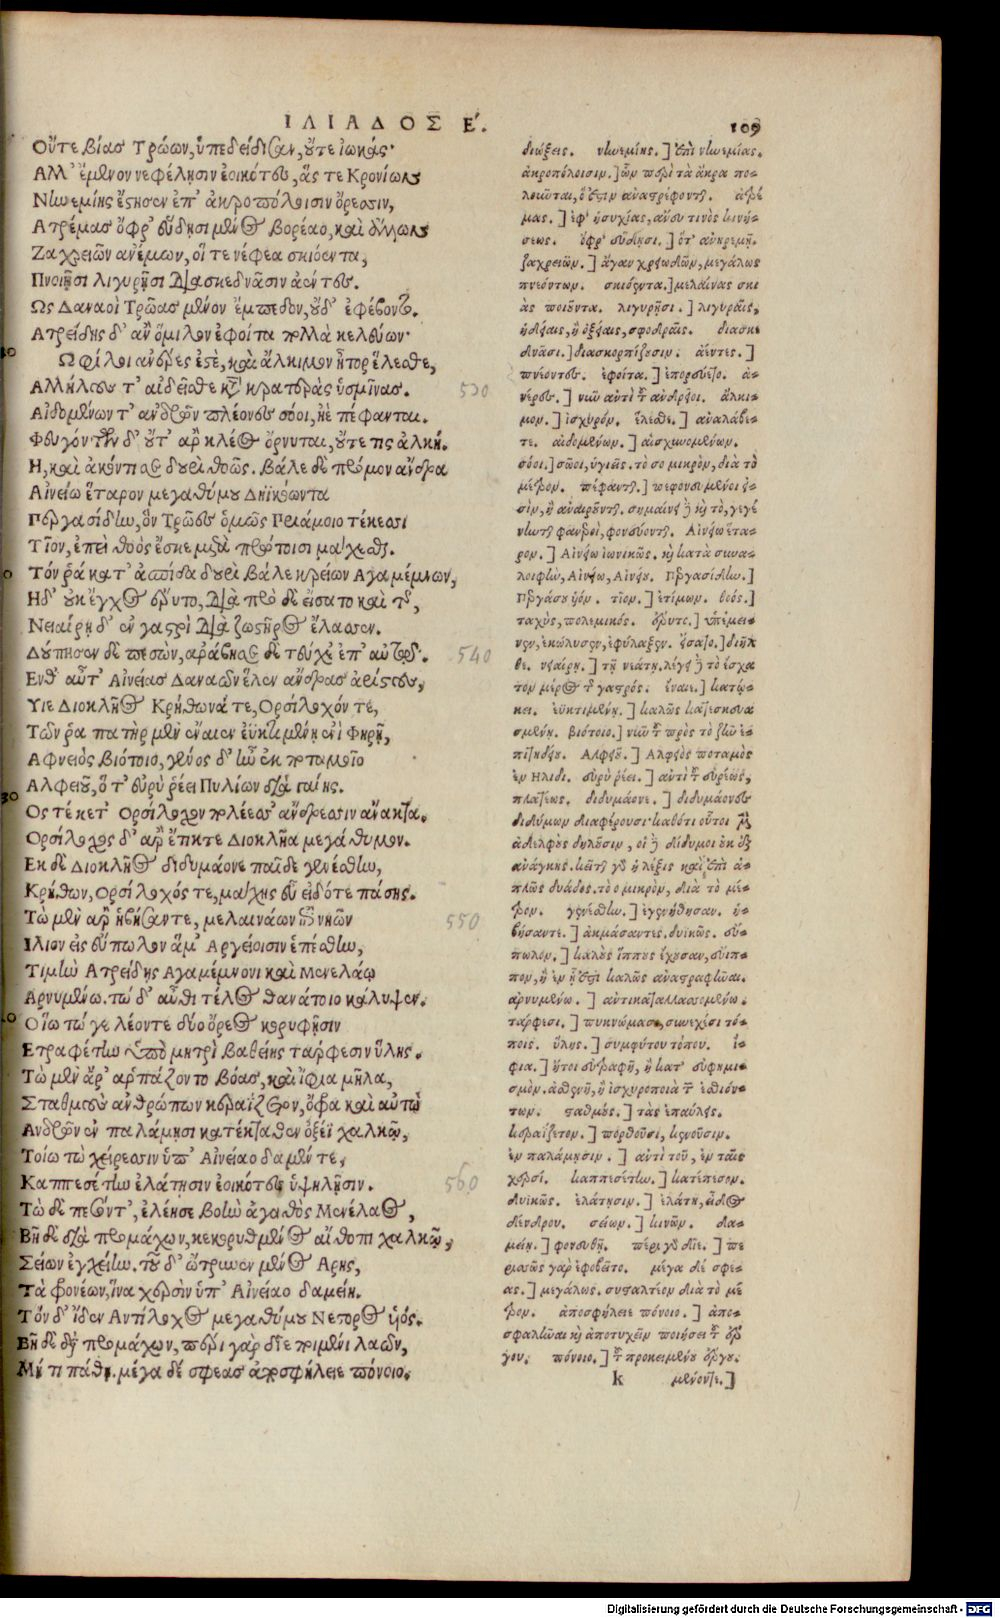 ΙΛΙΑΔΟΣ Ε.
109
Οὔτε βίας Τρώων, ὑπεδείδισαν, οὔτε ἰωκάς·
Αλλ' ἔμενον νεφέλησιν ἐοικότες, ἅς τε Κρονίων
Νηνεμίης ἔστησεν ἐπ' ἀκροπόλοισιν ὄρεσσιν,
Ατρέμας ὄφρ' εὕδησι μένος Βορέαο, καὶ ἄλλων
Ζαχρειῶν ἀνέμων, οἵ τε νέφεα σκιόεντα,
Πνοιῇσι λιγυρῇσι διασκεδνᾶσιν ἀέντες.
Ως Δαναοὶ Τρῶας μένον ἔμπεδον, οὐδ' ἐφέβοντο.
Ατρείδης δ' ἀν' ὅμιλον ἐφοίτα πολλὰ κελεύων·
Ω φίλοι ἀνέρες ἐστὲ, καὶ ἄλκιμον ἦτορ ἕλεσθε,
Αλλήλους τ' αἰδεῖσθε κατὰ κρατερὰς ὑσμίνας.
530
Αἰδομένων τ' ἀνδρῶν πλέονες σόοι, ἠὲ πέφανται.
Φευγόντων δ' οὔτ' ἂρ κλέος ὄρνυται, οὔτε τις ἀλκή.
Η, καὶ ἀκόντισε δουρὶ θοῶς. βάλε δὲ πρόμον ἄνδρα
Αἰνείω ἕταρον μεγαθύμου Δηϊκόωντα
Περγασίδην, ὃν Τρῶες ὁμῶς Πριάμοιο τέκεσσι
Τῖον, ἐπεὶ θοὸς ἔσκε μετὰ πρώτοισι μάχεσθαι.
Τόν ῥα κατ' ἀσπίδα δουρὶ βάλε κρείων Αγαμέμνων,
Ηδ' οὐκ ἔγχος ἔρυτο, διὰ πρὸ δὲ εἴσατο καὶ τῆς,
Νειαίρῃ δ' ἐν γαστρὶ διὰ ζωστῆρος ἔλασσεν.
Δούπησεν δὲ πεσὼν, ἀράβησε δὲ τεύχε' ἐπ' αὐτῷ.
540
Ενθ' αὖτ' Αἰνείας Δαναῶν ἕλεν ἄνδρας ἀρίστους,
Υἷε Διοκλῆος Κρήθωνά τε, Ορσίλοχόν τε,
Τῶν ῥα πατὴρ μὲν ἔναιεν ἐϋκτιμένῃ ἐνὶ Φηρῇ,
Αφνειὸς βιότοιο, γένος δ' ἦν ἐκ ποταμοῖο
Αλφειοῦ, ὅ τ' εὐρὺ ῥέει Πυλίων διὰ γαίης.
Ος τέκετ' Ορσίλοχον πολέεσσ' ἄνδρεσσιν ἄνακτα.
Ορσίλοχος δ' ἂρ ἔτικτε Διοκλῆα μεγάθυμον.
Εκ δὲ Διοκλῆος διδυμάονε παῖδε γενέσθην,
Κρήθων, Ορσίλοχός τε, μάχης εὖ εἰδότε πάσης.
Τὼ μὲν ἂρ ἡβήσαντε, μελαινάων ἐπὶ νηῶν
550
Ιλιον εἰς εὔπωλον ἅμ' Αργείοισιν ἑπέσθην,
Τιμὴν Ατρείδης Αγαμέμνονι καὶ Μενελάῳ
Αρνυμένω. τὼ δ' αὖθι τέλος θανάτοιο κάλυψεν.
Οἵω τώ γε λέοντε δύο ὄρεος κορυφῇσιν
Ετραφέτην ὑπὸ μητρὶ βαθείης τάρφεσιν ὕλης.
Τὼ μὲν ἄρ' ἁρπάζοντο βόας, καὶ ἴφια μῆλα,
Σταθμοὺς ἀνθρώπων κεραΐζετον, ὄφρα καὶ αὐτὼ
Ανδρῶν ἐν παλάμησι κατέκταθεν ὀξέϊ χαλκῷ,
Τοίω τὼ χείρεσσιν ὑπ' Αἰνείαο δαμέντε,
Καππεσέτην ἐλάτησιν ἐοικότες ὑψηλῇσιν.
560
Τὼ δὲ πεσόντ', ἐλέησε βοὴν ἀγαθὸς Μενέλαος,
Βῆ δὲ διὰ προμάχων, κεκορυθμένος αἴθοπι χαλκῷ,
Σείων ἐγχείην. τοῦ δ' ὤτρυνεν μένος Αρης,
Τὰ φρονέων, ἵνα χερσὶν ὑπ' Αἰνείαο δαμείη.
Τὸν δ' ἴδεν Αντίλοχος μεγαθύμου Νέστορος υἱός.
Βῆ δὲ διὰ προμάχων, περὶ γὰρ δίε ποιμένι λαῶν,
Μή τι πάθῃ. μέγα δέ σφεας ἀποσφήλειε πόνοιο.
διώξεις. νηνεμίης.] ἐπὶ νηνεμίας.
ἀκροπόλοισιν.] ὧν περὶ τὰ ἄκρα πο-
λοῦνται, ὅ ἐστιν ἀναστρέφονται. ἀτρέ
μας.] ἐφ' ἡσυχίας, ἄνευ τινὸς κινή-
σεως. ὄφρ' εὕδησι.] ὅτ' ἂν ἠρεμῇ.
ζαχρειῶν.] ἄγαν χρειωδῶν, μεγάλως
πνεόντων. σκιόεντα.] μελαίνας σκι
ὰς ποιοῦντα. λιγυρῇσι.] λιγυραῖς,
ἡδείαις, ἢ ὀξείαις, σφοδραῖς. διασκε
δνᾶσι.] διασκορπίζουσιν. ἀέντες.]
πνέοντες. ἐφοίτα.] ἐπορεύετο. ἀ-
νέρες.] νῦν ἀντὶ τοῦ ἀνδρεῖοι. ἄλκι-
μον.] ἰσχυρόν. ἕλεσθε.] ἀναλάβε-
τε. αἰδομένων.] αἰσχυνομένων.
σόοι.] σῶοι, ὑγιεῖς. τὸ σο μικρὸν, διὰ τὸ
μέτρον. πέφανται.] πεφονευμένοι εἰ-
σὶν, ἢ ἀναιροῦνται. σημαίνει δὲ καὶ τὸ, γεγέ
νηνται φανεροὶ, φονεύονται. Αἰνείω ἕτα-
ρον.] Αἰνείω ἰωνικῶς. καὶ κατὰ συνα-
λοιφὴν, Αἰνείω, Αἰνείου. Περγασίδην.]
Περγάσου υἱόν. τῖον.] ἐτίμων. θοός.]
ταχὺς, πολεμικός. ἔρυτο.] ἐπέμει-
νεν, ἐκώλυσεν, ἐφύλαξεν. εἴσατο.] διῆλ
θε. νειαίρῃ.] τῇ νεάτῃ. λέγει δὲ τὸ ἔσχα
τον μέρος τῆς γαστρός. ἔναιε.] κατῴ-
κει. ἐϋκτιμένῃ.] καλῶς κατεσκευα
σμένῃ. βιότοιο.] νῦν τῶν πρὸς τὸ ζῆν ἐ-
πιτηδείων. Αλφειοῦ.] Αλφειὸς ποταμὸς
ἐν Ηλιδι. εὐρὺ ῥέει.] ἀντὶ τοῦ εὐρέως,
πλατέως. διδυμάονε.] διδυμάονες
διδύμων διαφέρουσι· καθότι οὗτοι μὲν
ἀδελφοὺς δηλοῦσιν, οἱ δὲ δίδυμοι οὐκ ἐξ
ἀνάγκης. κεῖται γὰρ ἡ λέξις καὶ ἐπὶ ἁ-
πλῶς δυάδος. τὸ ο μικρὸν, διὰ τὸ μέ-
τρον. γενέσθην.] ἐγεννήθησαν. ἡ-
βήσαντε.] ἀκμάσαντες. δυϊκῶς. εὔ-
πωλον.] καλοὺς ἵππους ἔχουσαν, εὔιπ-
πον, ἢ ἐν ᾗ ἔστι καλῶς ἀναστραφῆναι.
ἀρνυμένω.] ἀντικαταλλασσομένω.
τάρφεσι.] πυκνώμασι, συνεχέσι τό-
ποις. ὕλης.] συμφύτου τόπου. ἴ-
φια.] ἤτοι εὐτραφῆ, ἢ κατ' εὐφημι-
σμὸν. ἀσθενῆ, ἢ ἰσχυροποιὰ τῶν ἐσθιόν-
των. σταθμούς.] τὰς ἐπαύλεις.
κεραΐζετον.] πορθοῦσι, κενοῦσιν.
ἐν παλάμησιν.] ἀντὶ τοῦ, ἐν ταῖς
χερσί. καππεσέτην.] κατέπεσον.
δυϊκῶς. ἐλάτησιν.] ἐλάτη, εἶδος
δένδρου. σείων.] κινῶν. δα-
μείη.] φονευθῇ. πέρι γὰρ δίε.] πε
ρισσῶς γὰρ ἐφοβεῖτο. μέγα δέ σφε-
ας.] μεγάλως. συσταλτέον διὰ τὸ μέ
τρον. ἀποσφήλειε πόνοιο.] ἀπο-
σφαλῆναι καὶ ἀποτυχεῖν ποιήσει τοῦ ἔρ
γου. πόνοιο.] τοῦ προκειμένου ἔργου.
k
μενούτε.]
Digitalisierung gefördert durch die Deutsche Forschungsgemeinschaft - DFG